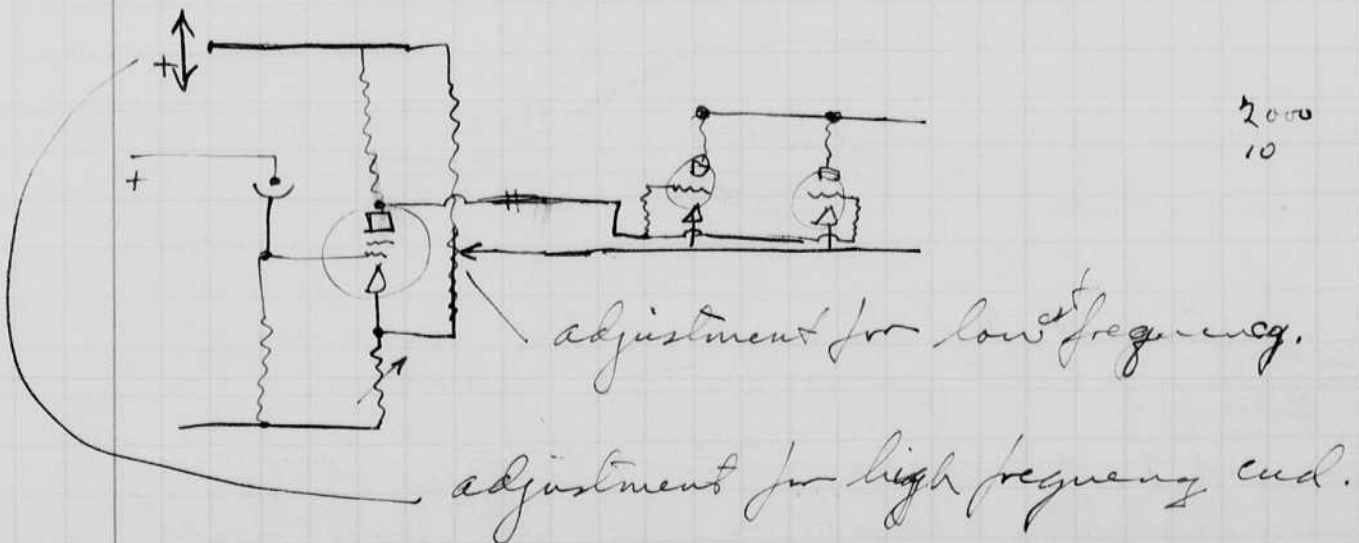 +
+
2000
10
adjustment for lowest frequency.
adjustment for high frequency end.